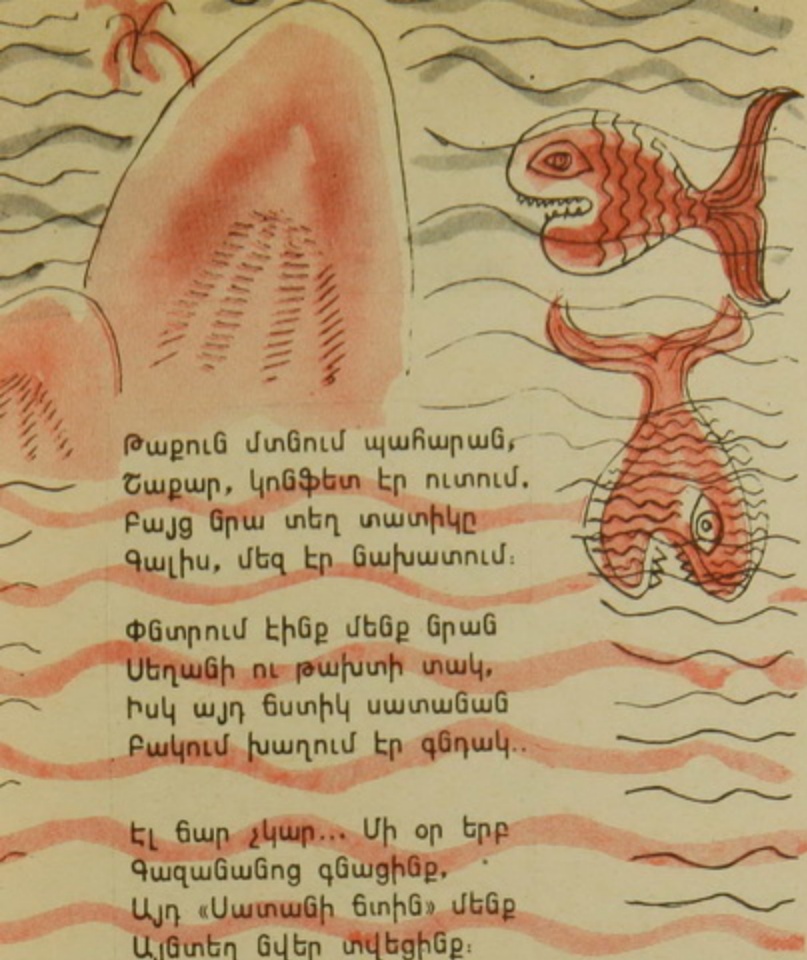 Թաքուն մտնում պահարան,
Շաքար, կոնֆետ էր ուտում.
Բայց նրա տեղ տատիկը
Գալիս, մեզ էր նախատում։
Փնտրում էինք մենք նրան
Սեղանի ու թախտի տակ,
Իսկ այդ ճստիկ սատանան
Բակում խաղում էր գնդակ..
Էլ ճար չկար... Մի օր երբ
Գազանանոց գնացինք,
Այդ «Սատանի ճտին» մենք
Այնտեղ նվեր տվեցինք։